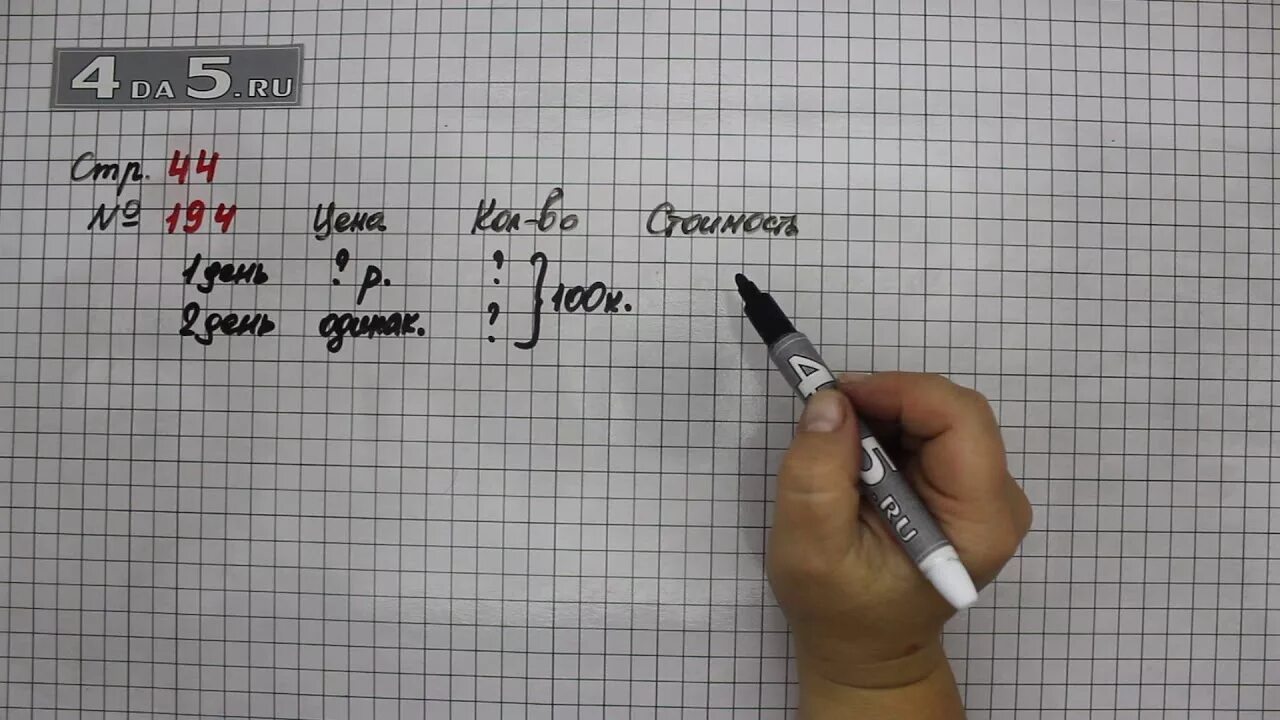 4DA5.RU
Стр. 44
№ 194 Цена Кол-во Стоимость
1 день ? р. ? } 100 к.
2 день одинак. ?
4 5.RU